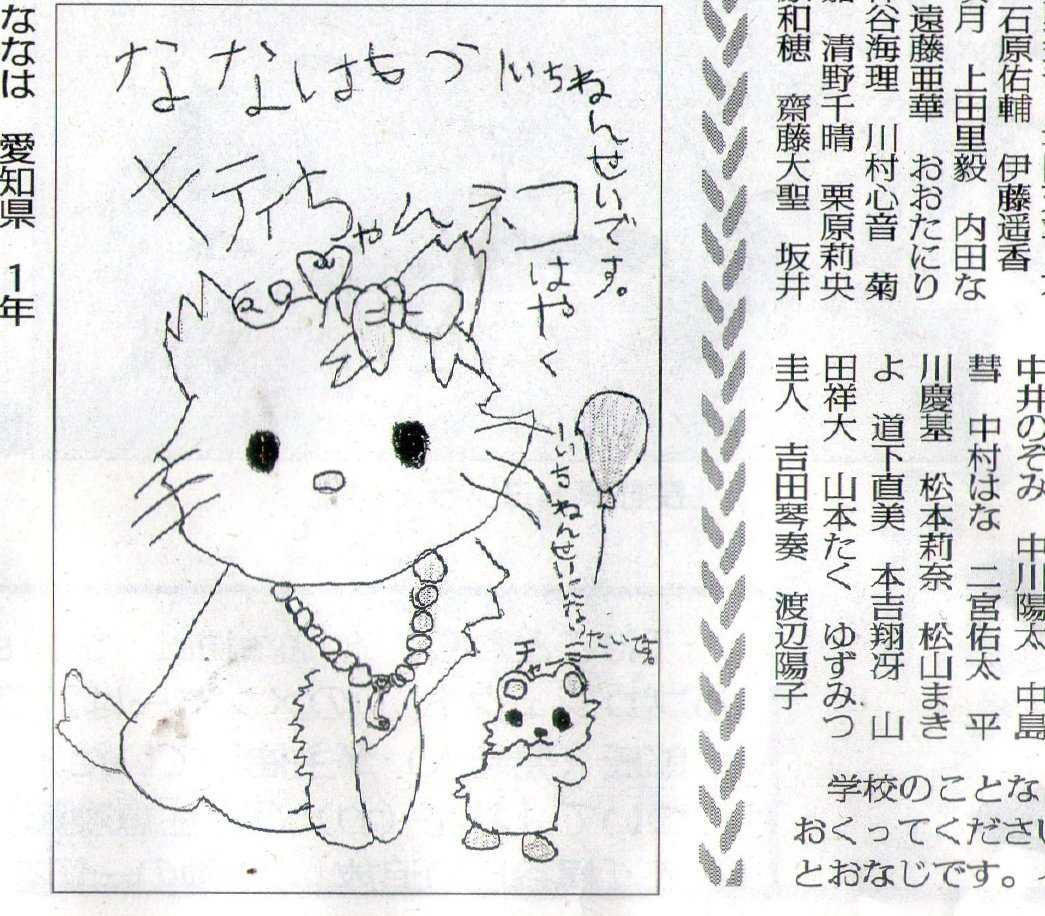 ななは 愛知県 1年
ななはもういちねんせいです。
キティちゃんネコはやくいちねんせいになりたいな。
チャミー
石原佑輔 伊藤遥香
月 上田里毅 内田な
遠藤亜華 おおたにり
谷海理 川村心音 菊
清野千晴 栗原莉央
和穂 齋藤大聖 坂井
中井のぞみ 中川陽太 中島
彗 中村はな 二宮佑太 平
川慶基 松本莉奈 松山まき
よ 道下直美 本吉翔冴 山
田祥大 山本たく ゆずみつ
圭人 吉田琴奏 渡辺陽子
学校のことな
おくってください
とおなじです。